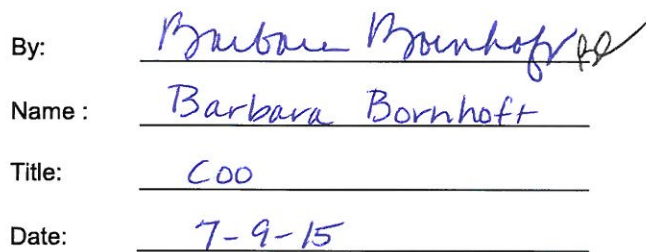 By: Barbara Bornhoft
Name : Barbara Bornhoft
Title: COO
Date: 7-9-15